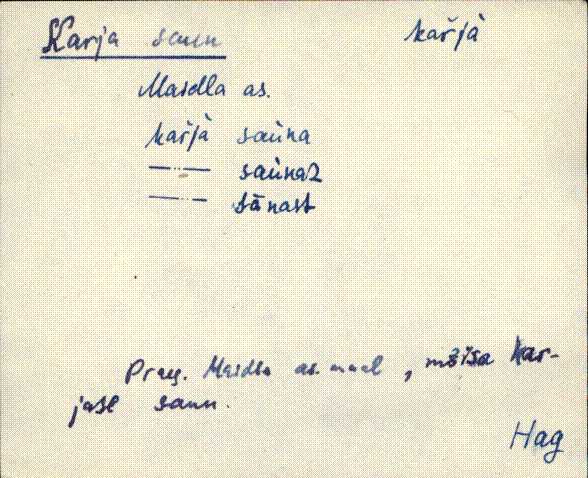 Karja saun
kař̌jà
Maidla as.
kař̌jà saùna
—··— saùnaz
—··— sānast
Praeg. Maidla as. maal, mõisa kar-
jase saun.
Hag